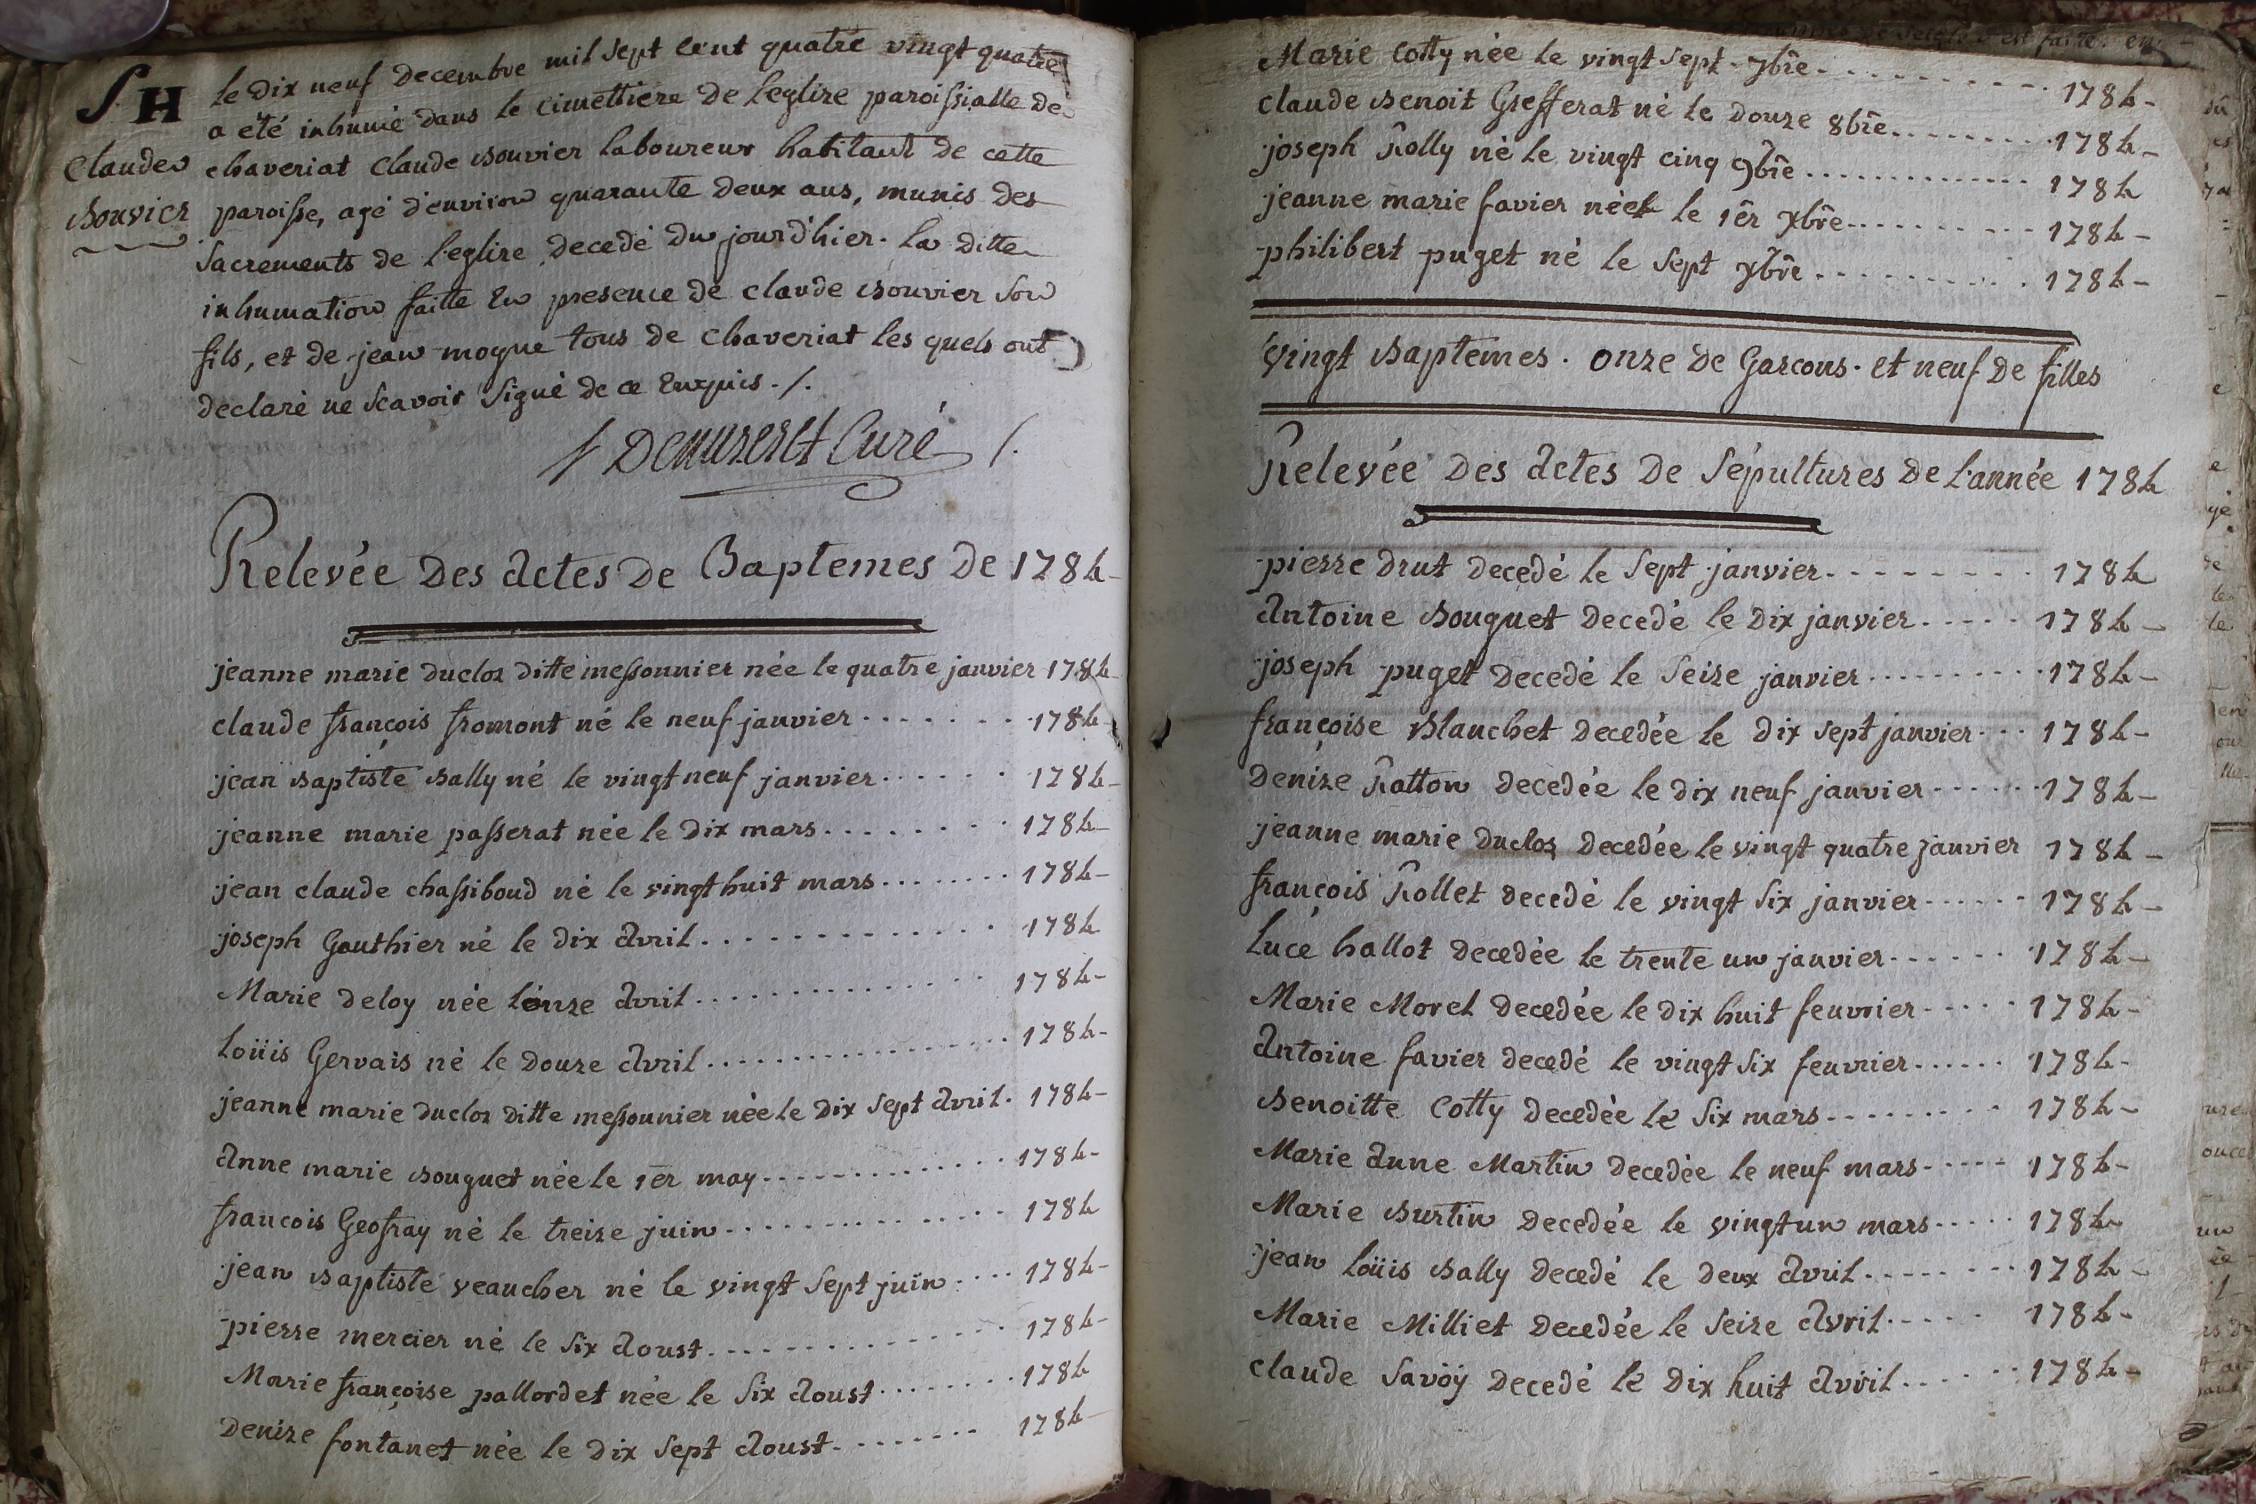 SH
Claude
Bouvier
le dix neuf decembre mil sept cent quatre vingt quatre
a été inhumé dans le cimettiere de leglize paroissialle de
chaveriat claude Bouvier laboureur habitant de cette
paroisse, agé d'environ quarante deux ans, munis des
Sacrements de l'eglize decedé du jour d'hier. la ditte
inhumation faitte en presence de claude Bouvier son
fils, et de jean moyne tous de chaveriat les quels ont
declaré ne scavoir signé de ce enquis ./.
Curé ./.
Relevée des actes de Baptemes de 1784
jeanne marie duclos ditte messonnier née le quatre janvier 1784
claude françois fromont né le neuf janvier ........ 1784
jean Baptiste Bally né le vingt neuf janvier ...... 1784
jeanne marie passerat née le dix mars ........ 1784
jean claude chassiboud né le vingt huit mars ........ 1784
joseph Gauthier né le dix avril ............ 1784
Marie deloy née l'onze avril ............ 1784
Loüis Gervais né le douze avril ................ 1784
jeanne marie duclos ditte messonnier née le dix sept avril . 1784
anne marie Bouguet née le 1er may ............. 1784
francois Geofray né le treize juin .............. 1784
jean Baptiste veaucher né le vingt sept juin .... 1784
pierre mercier né le six aoust .............. 1784
Marie françoise pallordet née le six aoust ........ 1784
Denize fontanet née le dix sept aoust ........ 1784
Marie Cotty née le vingt sept 7bre ........... 1784
claude Benoit Grefferat né le douze 8bre ......... 1784
joseph Rolly né le vingt cinq 9bre .............. 1784
jeanne marie favier née le 1er xbre ........... 1784
philibert puget né le sept xbre ........... 1784
vingt Baptemes. onze de Garcons. et neuf de filles
Relevée des actes de sépultures de l'année 1784
pierre drut decedé le sept janvier ......... 1784
antoine Bouguet decedé le dix janvier ..... 1784
joseph puget decedé le seize janvier .......... 1784
françoise Blanchet decedée le dix sept janvier ... 1784
Denize Ratton decedée le dix neuf janvier ...... 1784
jeanne marie duclos decedée le vingt quatre janvier 1784
françois Rollet decedé le vingt six janvier ...... 1784
Luce hallot decedée le trente un janvier ...... 1784
Marie Morel decedée le dix huit feuvrier ..... 1784
antoine favier decedé le vingt six feuvrier ...... 1784
Benoitte Cotty decedée le six mars ........ 1784
Marie anne Martin decedée le neuf mars ..... 1784
Marie Burtin decedée le vingt un mars ..... 1784
jean loüis Bally decedé le deux avril ........ 1784
Marie Milliet decedée le seize avril ..... 1784
claude savoy decedé le dix huit avril ...... 1784